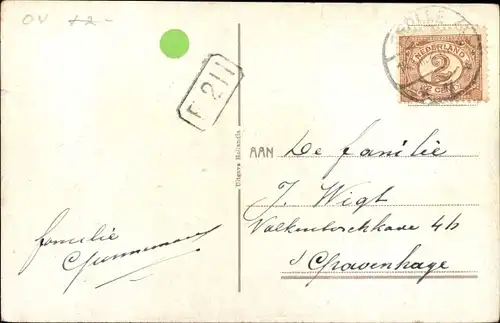 OV 12-
F 211
NEDERLAND
2½ CENT
Uitgave Hollandia
AAN
De familie
J. Wigt
Valkenboschkade 46
's Gravenhage
familie